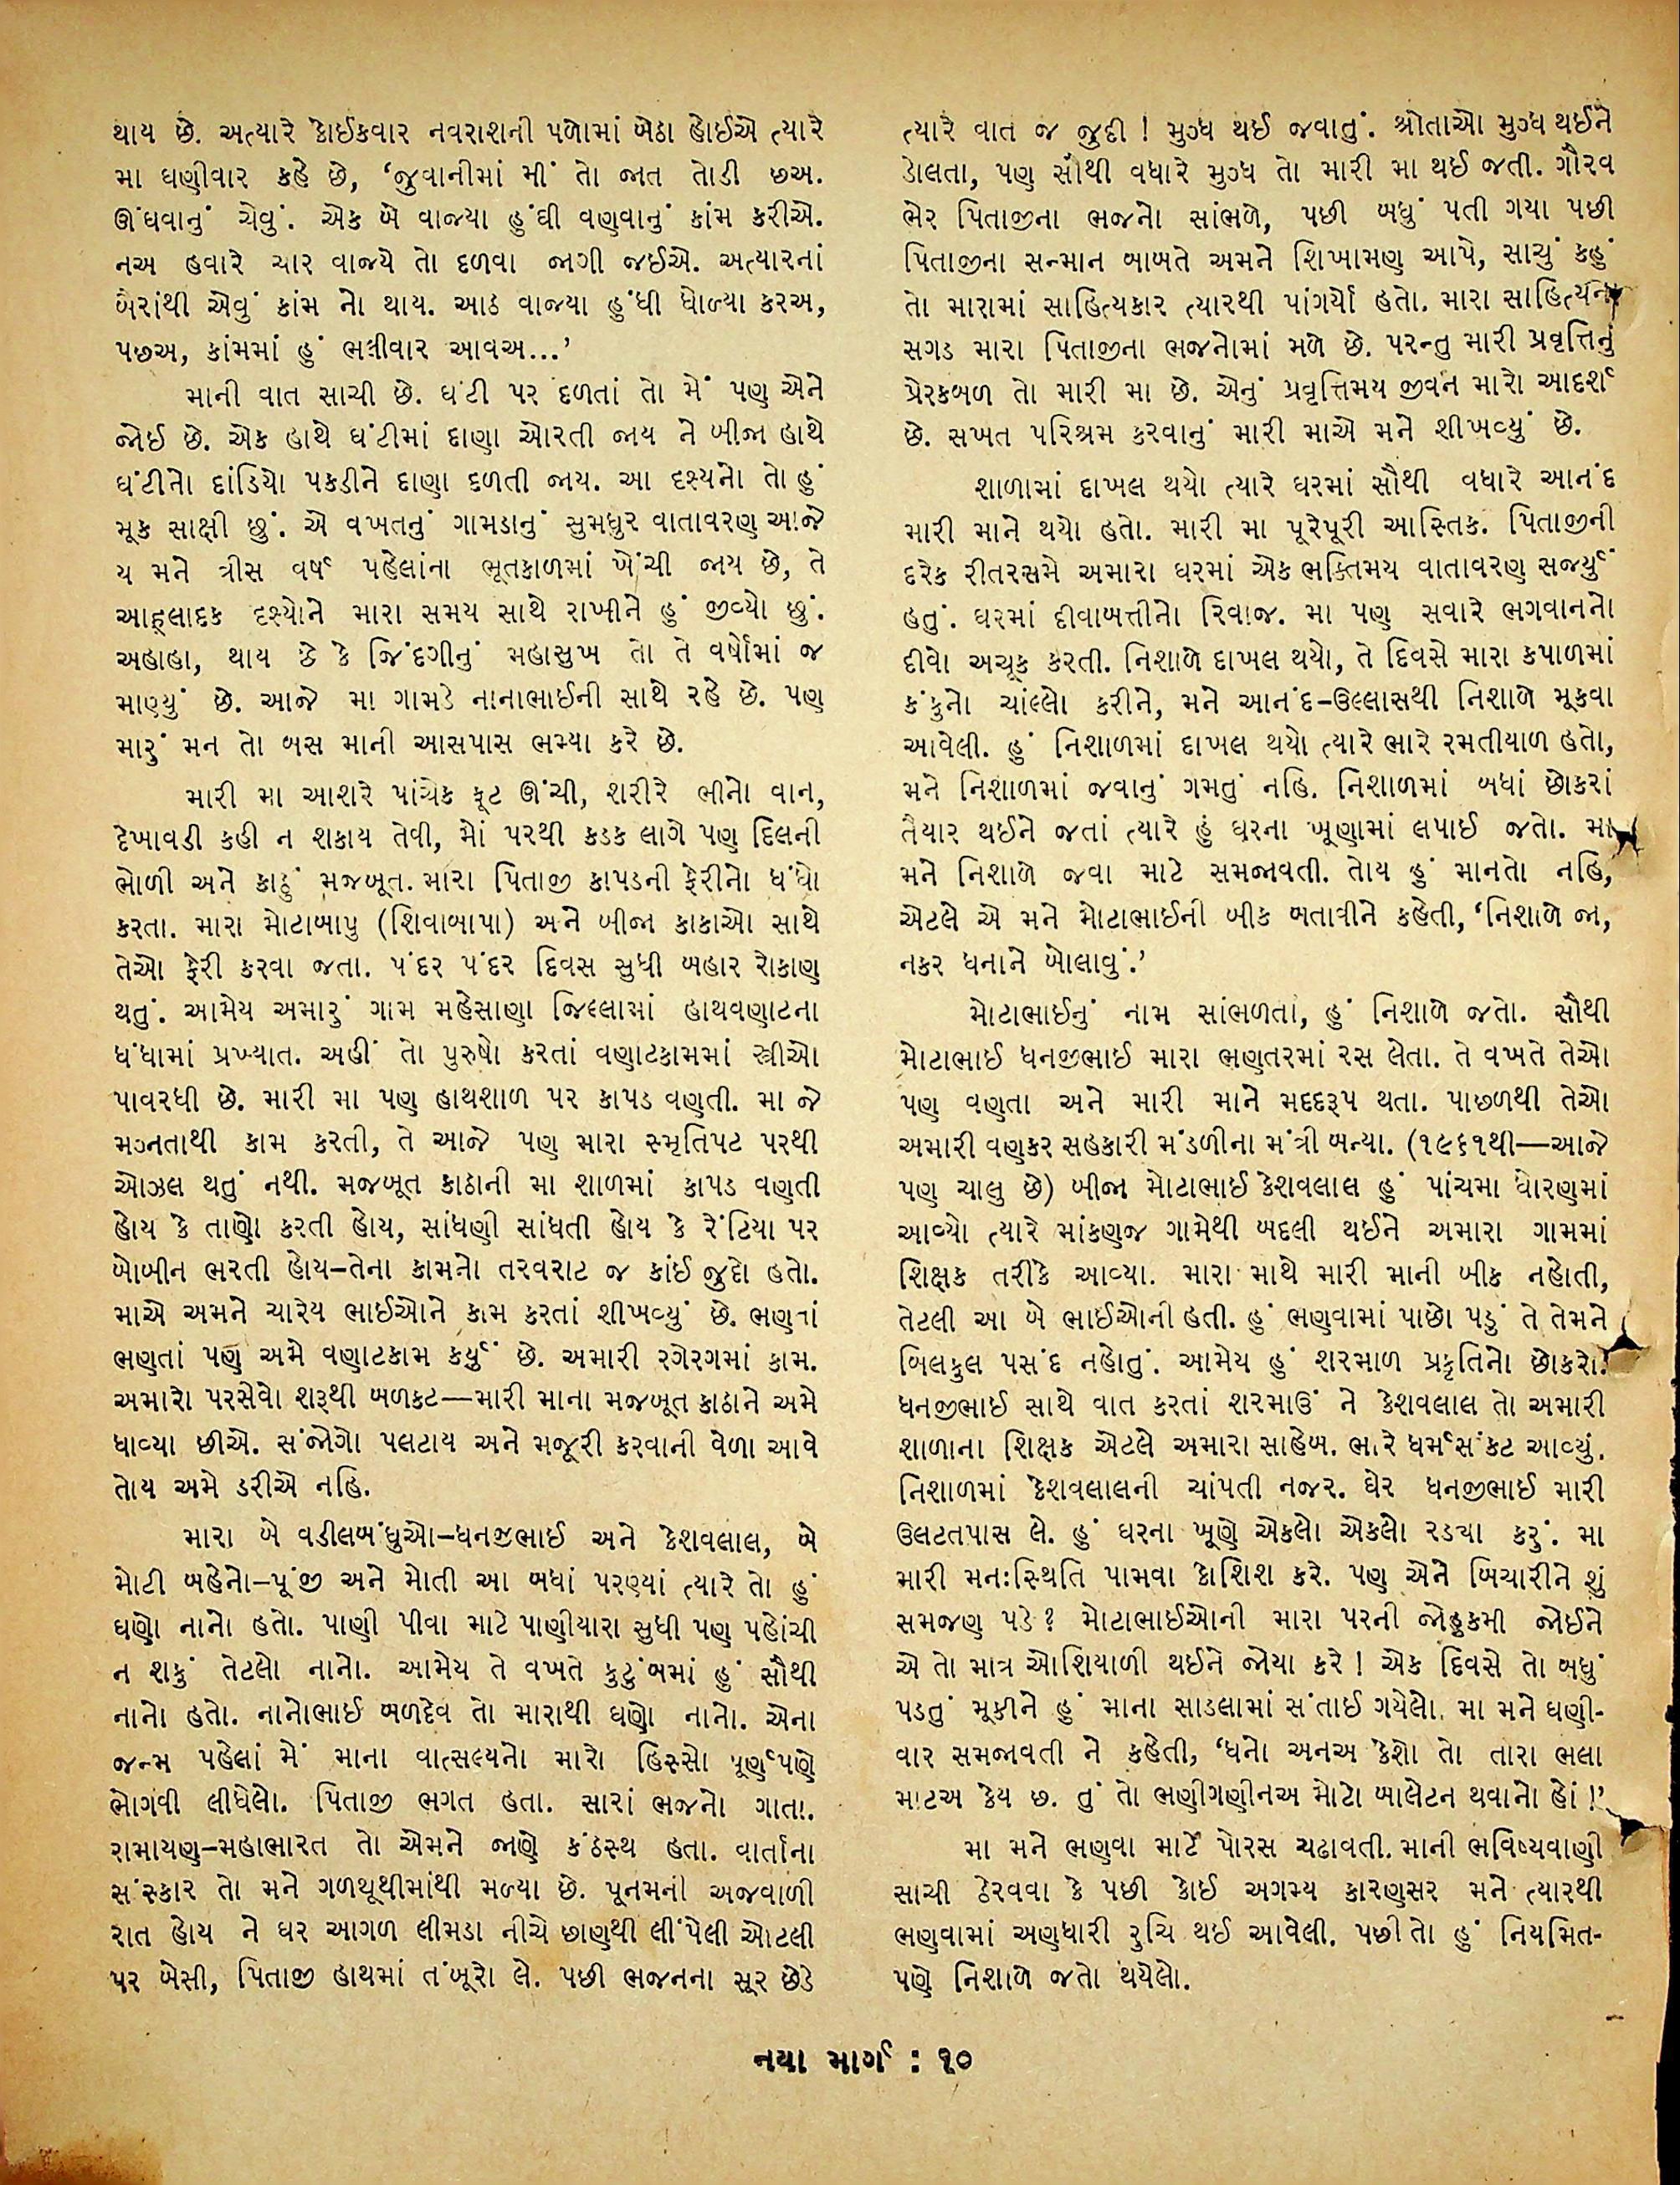 થાય છે. અત્યારે કોઈકવાર નવરાશની પળોમાં બેઠા હોઈએ ત્યારે
મા ઘણીવાર કહે છે, ‘જુવાનીમાં મીં તો જાત તોડી છઅ.
ઊંઘવાનું ચેવું. એક બે વાજ્યા હુંઘી વણવાનું કાંમ કરીએ.
નઅ હવારે ચાર વાજયે તો દળવા જાગી જઈએ. અત્યારનાં
બૈરાંથી એવું કાંમ નો થાય. આઠ વાજ્યા હુંધી ઘોળ્યા કરઅ,
પછઅ, કાંમમાં હું ભલીવાર આવઅ...’
માની વાત સાચી છે. ઘંટી પર દળતાં તો મેં પણ એને
જોઈ છે. એક હાથે ઘંટીમાં દાણા ઓરતી જાય ને બીજા હાથે
ઘંટીનો દાંડિયો પકડીને દાણા દળતી જાય. આ દશ્યનો તો હું
મૂક સાક્ષી છું. એ વખતનું ગામડાનું સુમધુર વાતાવરણ આજે
ય મને ત્રીસ વર્ષ પહેલાંના ભૂતકાળમાં ખેંચી જાય છે, તે
આહ્‌લાદક દશ્યોને મારા સમય સાથે રાખીને હું જીવ્યો છું.
અહાહા, થાય છે કે જિંદગીનું મહાસુખ તો તે વર્ષોમાં જ
માણ્યું છે. આજે મા ગામડે નાનાભાઈની સાથે રહે છે. પણ
મારું મન તો બસ માની આસપાસ ભમ્યા કરે છે.
મારી મા આશરે પાંચેક ફૂટ ઊંચી, શરીરે ભીનો વાન,
દેખાવડી કહી ન શકાય તેવી, મોં પરથી કડક લાગે પણ દિલની
ભોળી અને કાઠું મજબૂત. મારા પિતાજી કાપડની ફેરીનો ધંધો
કરતા. મારા મોટાબાપુ (શિવાબાપા) અને બીજા કાકાઓ સાથે
તેઓ ફેરી કરવા જતા. પંદર પંદર દિવસ સુધી બહાર રોકાણ
થતું. આમેય અમારું ગામ મહેસાણા જિલ્લામાં હાથવણાટના
ધંધામાં પ્રખ્યાત. અહીં તો પુરુષો કરતાં વણાટકામમાં સ્ત્રીઓ
પાવરધી છે. મારી મા પણ હાથશાળ પર કાપડ વણતી. મા જે
મગ્નતાથી કામ કરતી, તે આજે પણ મારા સ્મૃતિપટ પરથી
ઓઝલ થતું નથી. મજબૂત કાઠાની મા શાળમાં કાપડ વણતી
હોય કે તાણો કરતી હોય, સાંધણી સાંધતી હોય કે રેંટિયા પર
બોબીન ભરતી હોય–તેના કામનો તરવરાટ જ કાંઈ જુદો હતો.
માએ અમને ચારેય ભાઈઓને કામ કરતાં શીખવ્યું છે. ભણતાં
ભણતાં પણ અમે વણાટકામ કર્યું છે. અમારી રગેરગમાં કામ.
અમારો પરસેવો શરૂથી બળકટ—મારી માના મજબૂત કાઠાને અમે
ધાવ્યા છીએ. સંજોગો પલટાય અને મજૂરી કરવાની વેળા આવે
તોય અમે ડરીએ નહિ.
મારા બે વડીલબંધુઓ–ધનજીભાઈ અને કેશવલાલ, બે
મોટી બહેનો–પૂંજી અને મોતી આ બધાં પરણ્યાં ત્યારે તો હું
ઘણો નાનો હતો. પાણી પીવા માટે પાણીયારા સુધી પણ પહોંચી
ન શકું તેટલો નાનો. આમેય તે વખતે કુટુંબમાં હું સૌથી
નાનો હતો. નાનોભાઈ બળદેવ તો મારાથી ઘણો નાનો. એના
જન્મ પહેલાં મેં માના વાત્સલ્યનો મારો હિસ્સો પૂર્ણપણે
ભોગવી લીધેલો. પિતાજી ભગત હતા. સારાં ભજનો ગાતા.
રામાયણ–મહાભારત તો એમને જાણે કંઠસ્થ હતા. વાર્તાના
સંસ્કાર તો મને ગળથૂથીમાંથી મળ્યા છે. પૂનમની અજવાળી
રાત હોય ને ઘર આગળ લીમડા નીચે છાણથી લીંપેલી ઓટલી
પર બેસી, પિતાજી હાથમાં તંબૂરો લે. પછી ભજનના સૂર છેડે
ત્યારે વાત જ જુદી ! મુગ્ધ થઈ જવાતું. શ્રોતાઓ મુગ્ધ થઈને
ડોલતા, પણ સૌથી વધારે મુગ્ધ તો મારી મા થઈ જતી. ગૌરવ
ભેર પિતાજીના ભજનો સાંભળે, પછી બધું પતી ગયા પછી
પિતાજીના સન્માન બાબતે અમને શિખામણ આપે, સાચું કહું
તો મારામાં સાહિત્યકાર ત્યારથી પાંગર્યો હતો. મારા સાહિત્યના
સગડ મારા પિતાજીના ભજનોમાં મળે છે. પરન્તુ મારી પ્રવૃત્તિનું
પ્રેરકબળ તો મારી મા છે. એનું પ્રવૃત્તિમય જીવન મારો આદર્શ
છે. સખત પરિશ્રમ કરવાનું મારી માએ મને શીખવ્યું છે.
શાળામાં દાખલ થયો ત્યારે ઘરમાં સૌથી વધારે આનંદ
મારી માને થયો હતો. મારી મા પૂરેપૂરી આસ્તિક. પિતાજીની
દરેક રીતરસમે અમારા ઘરમાં એક ભક્તિમય વાતાવરણ સર્જ્યું
હતું. ઘરમાં દીવાબત્તીનો રિવાજ. મા પણ સવારે ભગવાનનો
દીવો અચૂક કરતી. નિશાળે દાખલ થયો, તે દિવસે મારા કપાળમાં
કંકુનો ચાંલ્લો કરીને, મને આનંદ–ઉલ્લાસથી નિશાળે મૂકવા
આવેલી. હું નિશાળમાં દાખલ થયો ત્યારે ભારે રમતીયાળ હતો,
મને નિશાળમાં જવાનું ગમતું નહિ. નિશાળમાં બધાં છોકરાં
તૈયાર થઈને જતાં ત્યારે હું ઘરના ખૂણામાં લપાઈ જતો. મા
મને નિશાળે જવા માટે સમજાવતી. તોય હું માનતો નહિ,
એટલે એ મને મોટાભાઈની બીક બતાવીને કહેતી, ‘નિશાળે જા,
નકર ધનાને બોલાવું.’
મોટાભાઈનું નામ સાંભળતાં, હું નિશાળે જતો. સૌથી
મોટાભાઈ ધનજીભાઈ મારા ભણતરમાં રસ લેતા. તે વખતે તેઓ
પણ વણતા અને મારી માને મદદરૂપ થતા. પાછળથી તેઓ
અમારી વણકર સહકારી મંડળીના મંત્રી બન્યા. (૧૯૬૧થી—આજે
પણ ચાલુ છે) બીજા મોટાભાઈ કેશવલાલ હું પાંચમા ધોરણમાં
આવ્યો ત્યારે માંકણજ ગામેથી બદલી થઈને અમારા ગામમાં
શિક્ષક તરીકે આવ્યા. મારા માથે મારી માની બીક નહોતી,
તેટલી આ બે ભાઈઓની હતી. હું ભણવામાં પાછો પડું તે તેમને
બિલકુલ પસંદ નહોતું. આમેય હું શરમાળ પ્રકૃતિનો છોકરો.
ધનજીભાઈ સાથે વાત કરતાં શરમાઉં ને કેશવલાલ તો અમારી
શાળાના શિક્ષક એટલે અમારા સાહેબ. ભારે ધર્મસંકટ આવ્યું.
નિશાળમાં કેશવલાલની ચાંપતી નજર. ઘેર ધનજીભાઈ મારી
ઉલટતપાસ લે. હું ઘરના ખૂણે એકલો એકલો રડ્યા કરું. મા
મારી મનઃસ્થિતિ પામવા કોશિશ કરે. પણ એને બિચારીને શું
સમજણ પડે ? મોટાભાઈઓની મારા પરની જોહુકમી જોઈને
એ તો માત્ર ઓશિયાળી થઈને જોયા કરે ! એક દિવસે તો બધું
પડતું મૂકીને હું માના સાડલામાં સંતાઈ ગયેલો. મા મને ઘણી-
વાર સમજાવતી ને કહેતી, ‘ધનો અનઅ કેશો તો તારા ભલા
માટઅ કેય છ. તું તો ભણીગણીનઅ મોટો બાલેટન થવાનો હોં !’
મા મને ભણવા માટે પોરસ ચઢાવતી. માની ભવિષ્યવાણી
સાચી ઠેરવવા કે પછી કોઈ અગમ્ય કારણસર મને ત્યારથી
ભણવામાં અણધારી રુચિ થઈ આવેલી. પછી તો હું નિયમિત-
પણે નિશાળે જતો થયેલો.
નયા માર્ગ : ૧૦